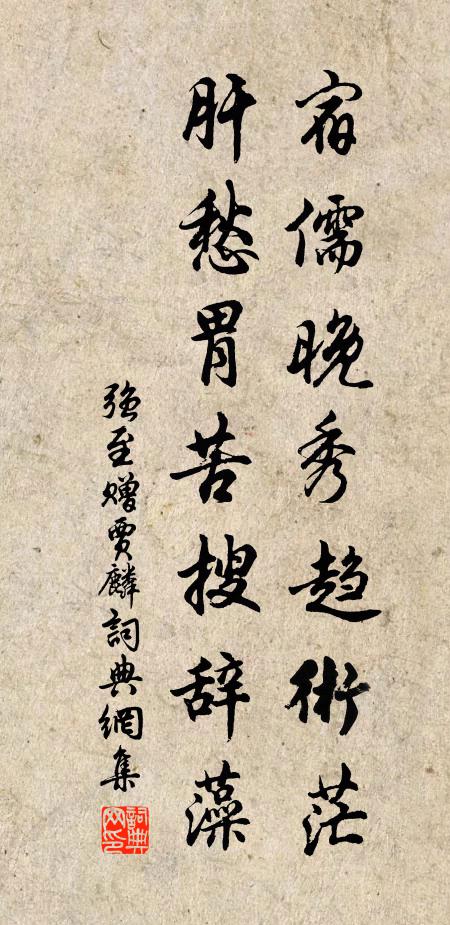 宿儒晚秀趋術茫
肝愁胃苦搜辞藻
强至赠贾麟詞典網集
詞典网印